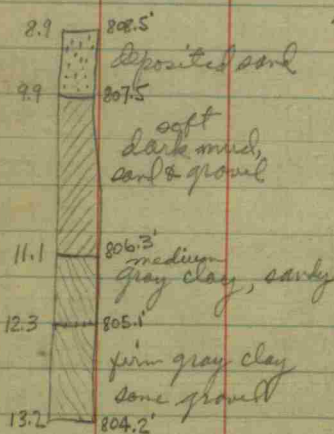 8.9 808.5'
deposited sand
9.9 807.5
soft
dark mud,
sand & gravel
11.1 806.3'
medium
gray clay, sandy
12.3 805.1'
firm gray clay
some gravel
13.2 804.2'